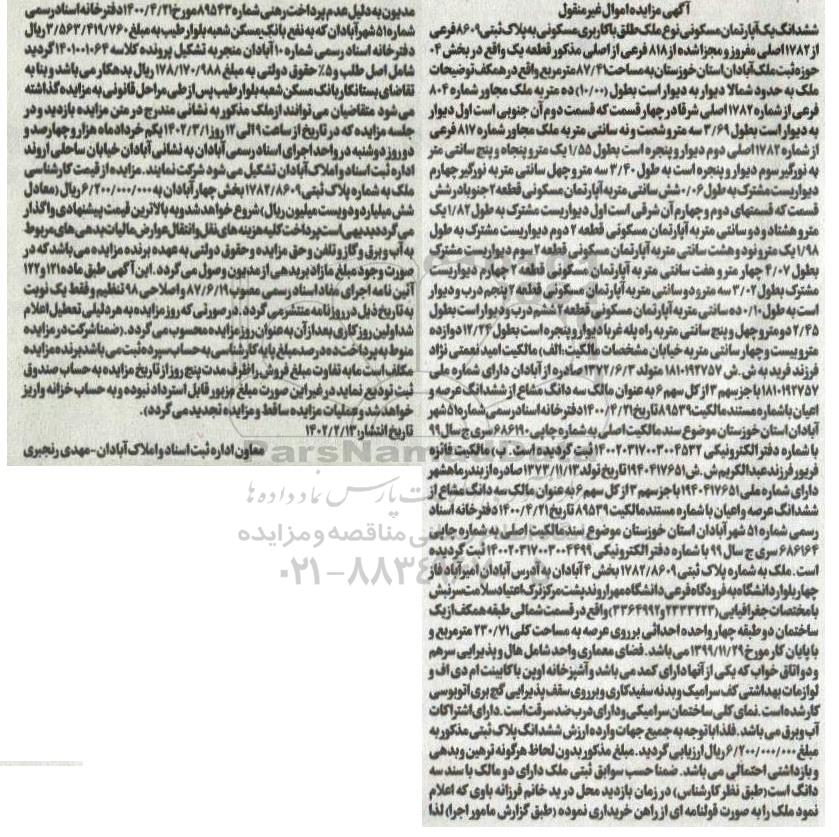 آگهی مزایده اموال غیر منقول
ششدانگ یک آپارتمان مسکونی نوع ملک طلق با کاربری مسکونی به پلاک ثبتی ۸۶۰۹ فرعی
از ۱۷۸۲ اصلی مفروز و مجزا شده از ۸۱۸ فرعی از اصلی مذکور قطعه یک واقع در بخش ۰۴
حوزه ثبت ملک آبادان استان خوزستان به مساحت ۸۷/۴۱ متر مربع واقع در همکف توضیحات
ملک به حدود شمالا دیوار به دیوار است بطول (۱۰/۰۰) ده متر به ملک مجاور شماره ۸۰۴
فرعی از شماره ۱۷۸۲ اصلی شرقا در چهار قسمت که قسمت دوم آن جنوبی است اول دیوار
به دیوار است بطول ۳/۶۹ سه متر و شصت و نه سانتی متر به ملک مجاور شماره ۸۱۷ فرعی
از شماره ۱۷۸۲ اصلی دوم دیوار و پنجره است بطول ۱/۵۵ یک متر و پنجاه و پنج سانتی متر
به نورگیر سوم دیوار و پنجره است به طول ۳/۴۰ سه متر و چهل سانتی متر به نورگیر چهارم
دیواریست مشترک به طول ۰/۰۶ شش سانتی متر به آپارتمان مسکونی قطعه ۲ جنوبا در شش
قسمت که قسمتهای دوم و چهارم آن شرقی است اول دیواریست مشترک به طول ۱/۸۲ یک
متر و هشتاد و دو سانتی متر به آپارتمان مسکونی قطعه ۲ دوم دیواریست مشترک به طول
۱/۹۸ یک متر و نود و هشت سانتی متر به آپارتمان مسکونی قطعه ۲ سوم دیواریست مشترک
بطول ۴/۰۷ چهار متر و هفت سانتی متر به آپارتمان مسکونی قطعه ۲ چهارم دیواریست
مشترک بطول ۳/۰۲ سه متر و دو سانتی متر به آپارتمان مسکونی قطعه ۲ پنجم درب و دیوار
است به طول ۰/۱۰ ده سانتی متر به آپارتمان مسکونی قطعه ۲ ششم درب و دیوار است بطول
۲/۴۵ دو متر و چهل و پنج سانتی متر به راه پله غربا دیوار و پنجره است بطول ۱۲/۲۴ دوازده
متر و بیست و چهار سانتی متر به خیابان مشخصات مالکیت: الف) مالکیت امید نعمتی نژاد
فرزند فرید به ش.ش ۱۸۱۰۱۹۲۷۵۷ متولد ۱۳۷۲/۶/۳ صادره از آبادان دارای شماره ملی
۱۸۱۰۱۹۲۷۵۷ با جز سهم ۳ از کل سهم ۶ به عنوان مالک سه دانگ مشاع از ششدانگ عرصه و
اعیان با شماره مستند مالکیت ۸۹۵۳۹ تاریخ ۱۴۰۰/۴/۲۱ دفترخانه اسناد رسمی شماره ۵۱ شهر
آبادان استان خوزستان موضوع سند مالکیت اصلی به شماره چاپی ۶۸۶۱۹۰ سری ج سال ۹۹
با شماره دفتر الکترونیکی ۱۴۰۰۲۰۳۱۷۰۰۳۰۰۴۵۳۲ ثبت گردیده است. ب) مالکیت فائزه
فریور فرزند عبدالکریم ش.ش ۱۹۴۰۴۱۷۶۵۱ تاریخ تولد ۱۳۷۳/۱۱/۱۳ صادره از بندر ماهشهر
دارای شماره ملی ۱۹۴۰۴۱۷۶۵۱ با جز سهم ۳ از کل سهم ۶ به عنوان مالک سه دانگ مشاع از
ششدانگ عرصه و اعیان با شماره مستند مالکیت ۸۹۵۳۹ تاریخ ۱۴۰۰/۴/۲۱ دفترخانه اسناد
رسمی شماره ۵۱ شهر آبادان استان خوزستان موضوع سند مالکیت اصلی به شماره چاپی
۶۸۶۱۶۴ سری ج سال ۹۹ با شماره دفتر الکترونیکی ۱۴۰۰۲۰۳۱۷۰۰۳۰۰۴۴۹۹ ثبت گردیده
است. ملک به شماره پلاک ثبتی ۱۷۸۲/۸۶۰۹ بخش ۴ آبادان به آدرس آبادان امیرآباد فاز
چهار بلوار دانشگاه به فرودگاه فرعی دانشگاه مهر اروند پشت مرکز ترک اعتیاد سلامت سر نبش
با مختصات جغرافیایی (۲۳۳۳۲۲۳ و ۳۳۶۴۹۹۲) واقع در قسمت شمالی طبقه همکف از یک
ساختمان دو طبقه چهار واحده احداثی بر روی عرصه به مساحت کلی ۲۳۰/۷۱ متر مربع و
با پایان کار مورخ ۱۳۹۹/۱۱/۲۹ می باشد. فضای معماری واحد شامل هال و پذیرایی سرهم
و دو اتاق خواب که یکی از آنها دارای کمد می باشد و آشپزخانه اوپن با کابینت ام دی اف و
لوازمات بهداشتی کف سرامیک و بدنه سفیدکاری و بر روی سقف پذیرایی گچ بری اتوبوسی
کار شده است. نمای کلی ساختمان سرامیکی و دارای درب ضد سرقت است. دارای اشتراکات
آب و برق می باشد. فلذا با توجه به جمیع جهات وارده ارزش ششدانگ پلاک ثبتی مذکور به
مبلغ ۶/۲۰۰/۰۰۰/۰۰۰ ریال ارزیابی گردید. مبلغ مذکور بدون لحاظ هرگونه ترهین و بدهی
و بازداشتی احتمالی می باشد. ضمنا حسب سوابق ثبتی ملک دارای دو مالک با سند سه
دانگ است (طبق نظر کارشناس) در زمان بازدید محل در ید خانم فرزانه باوی که اعلام
نمود ملک را به صورت قولنامه ای از راهن خریداری نموده (طبق گزارش مامور اجرا) لذا
مدیون به دلیل عدم پرداخت رهنی شماره ۸۹۵۴۳ مورخ ۱۴۰۰/۴/۲۱ دفترخانه اسناد رسمی
شماره ۵۱ شهر آبادان که به نفع بانک مسکن شعبه بلوار طیب به مبلغ ۳/۵۶۳/۴۱۹/۷۶۰ ریال
دفترخانه اسناد رسمی شماره ۱۰ آبادان منجر به تشکیل پرونده کلاسه ۱۴۰۰۱۰۰۱۰۶۴ گردید
شامل اصل طلب و ۵٪ حقوق دولتی به مبلغ ۱۷۸/۱۷۰/۹۸۸ ریال بدهکار می باشد و بنا به
تقاضای بستانکار بانک مسکن شعبه بلوار طیب پس از طی مراحل قانونی به مزایده گذاشته
می شود متقاضیان می توانند از ملک مذکور به نشانی مندرج در متن مزایده بازدید و در
جلسه مزایده که در تاریخ از ساعت ۹ الی ۱۲ روز ۱۴۰۲/۳/۱ یکم خرداد ماه هزار و چهارصد و
دو روز دوشنبه در واحد اجرای اسناد رسمی آبادان به نشانی آبادان خیابان ساحلی اروند
اداره ثبت اسناد و املاک آبادان تشکیل می شود شرکت نمایند. مزایده از قیمت کارشناسی
ملک به شماره پلاک ثبتی ۱۷۸۲/۸۶۰۹ بخش چهار آبادان به ۶/۲۰۰/۰۰۰/۰۰۰ ریال (معادل
شش میلیارد و دویست میلیون ریال) شروع خواهد شد و به بالاترین قیمت پیشنهادی واگذار
می گردد بدیهی است پرداخت کلیه هزینه های نقل و انتقال عوارض مالیات بدهی های مربوط
به آب و برق و گاز و تلفن و حق مزایده و حقوق دولتی به عهده برنده مزایده می باشد که در
صورت وجود مبلغ مازاد بر بدهی از مدیون وصول می گردد. این آگهی طبق ماده ۱۲۱ و ۱۲۲
آئین نامه اجرای مفاد اسناد رسمی مصوب ۸۷/۶/۱۹ و اصلاحی ۹۸ تنظیم و فقط یک نوبت
به تاریخ ذیل در روزنامه منتشر می گردد. در صورتی که روز مزایده به هر دلیلی تعطیل اعلام
شد اولین روز کاری بعد از آن به عنوان روز مزایده محسوب می گردد. (ضمنا شرکت در مزایده
منوط به پرداخت ده درصد مبلغ پایه کارشناسی به حساب سپرده ثبت می باشد برنده مزایده
مکلف است مابه تفاوت مبلغ فروش را ظرف مدت پنج روز از تاریخ مزایده به حساب صندوق
ثبت تودیع نماید در غیر این صورت مبلغ مزبور قابل استرداد نبوده و به حساب خزانه واریز
خواهد شد و عملیات مزایده ساقط و مزایده تجدید می گردد).
تاریخ انتشار: ۱۴۰۲/۲/۱۳
معاون اداره ثبت اسناد و املاک آبادان-مهدی رنجبری